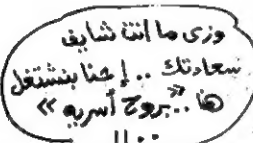 وزى ما انت شايف
سعادتك .. إحنا بنشتغل
هنا .. بروح أسريه »
..!!